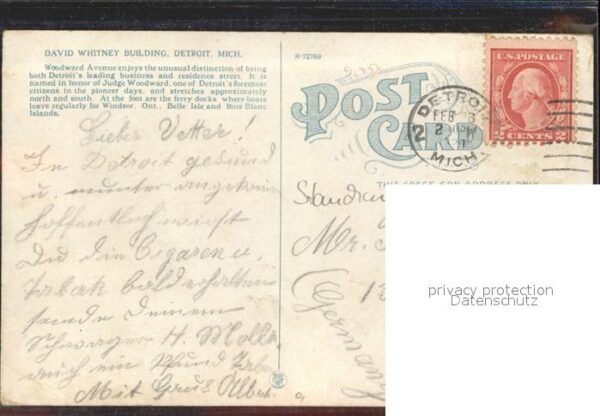 DAVID WHITNEY BUILDING, DETROIT, MICH.
Woodward Avenue enjoys the unusual distinction of being
both Detroit's leading business and residence street. It is
named in honor of Judge Woodward, one of Detroit's foremost
citizens in the pioneer days, and stretches approximately
north and south. At the foot are the ferry docks where boats
leave regularly for Windsor, Ont., Belle Isle and Bois Blanc
Islands.
Lieber Vetter!
In Detroit gesund
u. munter angekomm
hoffentlich wirst
Du die Cigaren u.
Tabak bald erhalten
sende Deinem
Schwager H. Molle
auch ein Pfund
Mit Gruß Albert
R-72769
POST
CARD
DETROIT
FEB
2
MICH
U.S. POSTAGE
2 CENTS 2
THIS SPACE FOR ADDRESS ONLY
Mr.
(Germany
privacy protection
Datenschutz